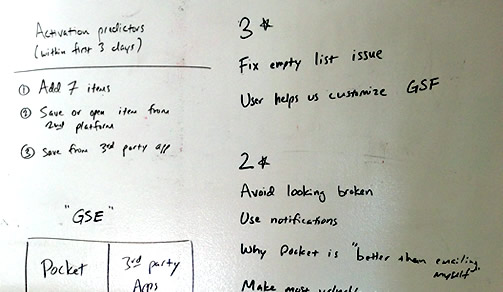 Activation predictors
(within first 3 days)
① Add 7 items
② Save or open item from
2nd platform
③ Save from 3rd party app
"GSE"
Pocket
3rd party
Apps
3 *
Fix empty list issue
User helps us customize GSF
2 *
Avoid looking broken
Use notifications
Why Pocket is "better than emailing
myself".
Make most